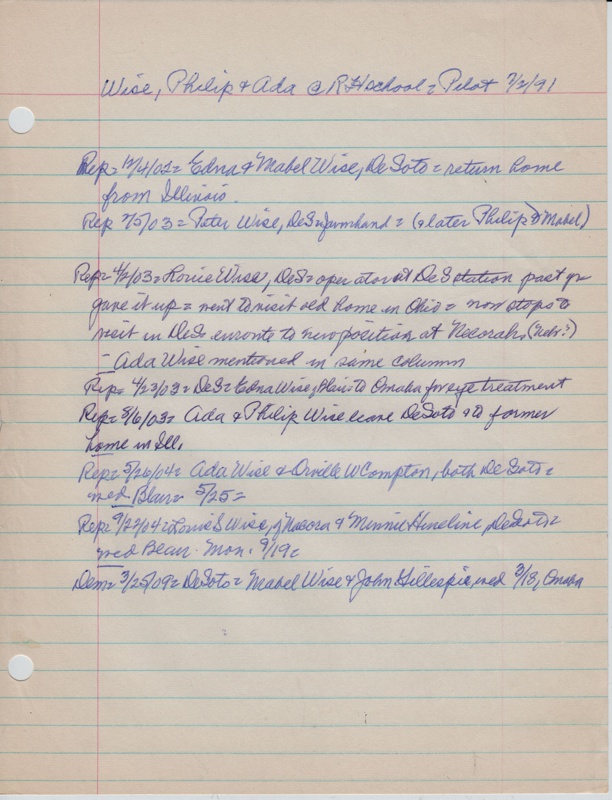 Wise, Philip & Ada @ RH school = Pilot 7/2/91
Rep = 12/4/02 = Edna & Mabel Wise, DeSoto = return home
from Illinois.
Rep 7/5/03 = Peter Wise, DeS = farmhand = (& later Philip & Mabel)
Rep = 4/2/03 = Wise, DeS = operator at DeS station past yr
gave it up = went to visit old home in Ohio = now stops to
visit in DeS enroute to new position at Necorah, (Nebr.?)
- Ada Wise mentioned in same column
Rep = 4/23/03 = DeS = Edna Wise, to Omaha for eye treatment
Rep = 8/6/03 = Ada & Philip Wise leave DeSoto to former
home in Ill.
Rep = 5/26/04 = Ada Wise & Orville W Compton, both DeSoto =
wed Blair = 5/25 =
Rep = 9/22/04 = Louie S Wise, of Nacora & Minnie Hineline, DeSoto =
wed Blair. Mon. 9/19 =
Dem = 3/25/09 = DeSoto = Mabel Wise & John Gillespie, wed 3/18, Omaha